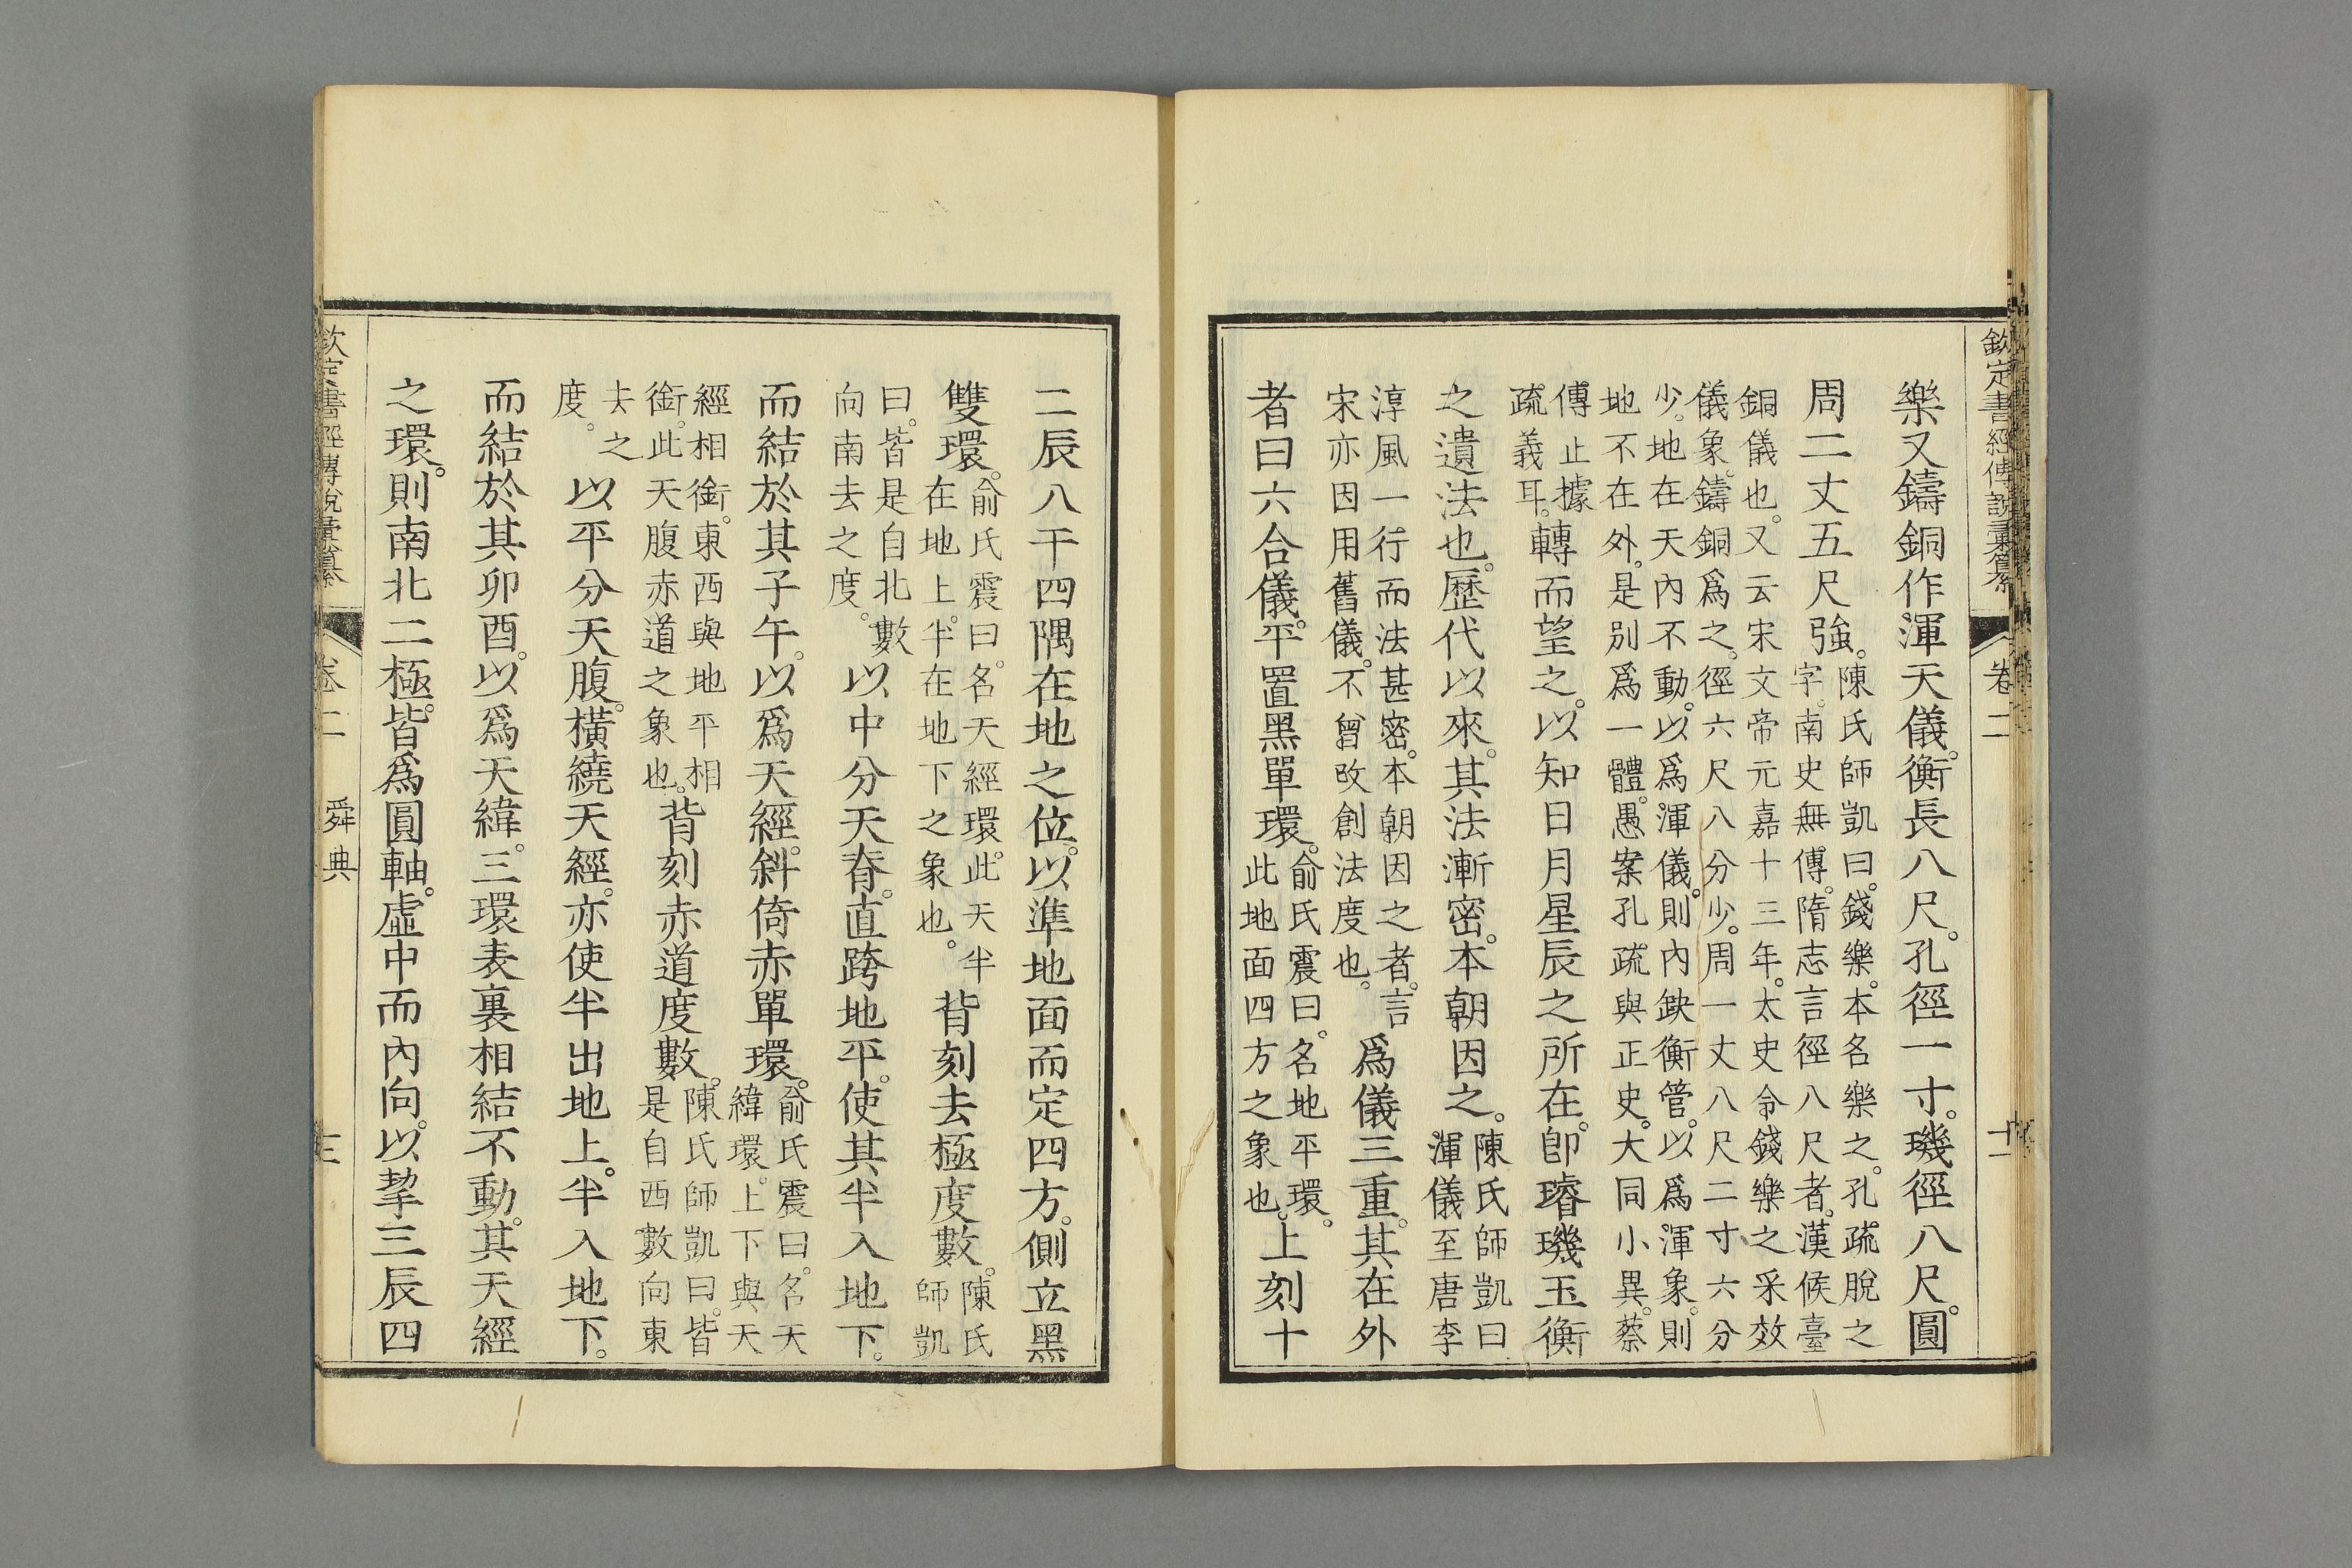 欽定書經傳說彙纂 卷二 十二
樂又鑄銅作渾天儀。衡長八尺。孔徑一寸。璣徑八尺。圓
周二丈五尺強。
陳氏師凱曰。錢樂。本名樂之。孔疏脫之
字。南史無傳。隋志言徑八尺者。漢候臺
銅儀也。又云宋文帝元嘉十三年。太史令錢樂之采效
儀象。鑄銅爲之。徑六尺八分少。周一丈八尺二寸六分
少。地在天內不動。以爲渾儀。則內缺衡管。以爲渾象。則
地不在外。是別爲一體。愚案孔疏與正史。大同小異。蔡
傳止據
疏義耳。
轉而望之。以知日月星辰之所在。卽璿璣玉衡
之遺法也。歷代以來。其法漸密。本朝因之。
陳氏師凱曰
渾儀至唐李
淳風一行而法甚密。本朝因之者。言
宋亦因用舊儀。不曾改創法度也。
爲儀三重。其在外
者曰六合儀。平置黑單環。
俞氏震曰。名地平環。
此地面四方之象也。
上刻十
二辰八干四隅在地之位。以準地面而定四方。側立黑
雙環。
俞氏震曰。名天經環。此天半
在地上。半在地下之象也。
背刻去極度數。
陳氏
師凱
曰。皆是自北數
向南去之度。
以中分天脊。直跨地平。使其半入地下。
而結於其子午。以爲天經。斜倚赤單環。
俞氏震曰。名天
緯環。上下與天
經相銜。東西與地平相
銜。此天腹赤道之象也。
背刻赤道度數。
陳氏師凱曰。皆
是自西數向東
去之
度。
以平分天腹。橫繞天經。亦使半出地上。半入地下。
而結於其卯酉。以爲天緯。三環表裏相結不動。其天經
之環。則南北二極。皆爲圓軸。虛中而內向。以挈三辰四
欽定書經傳說彙纂 卷二 舜典